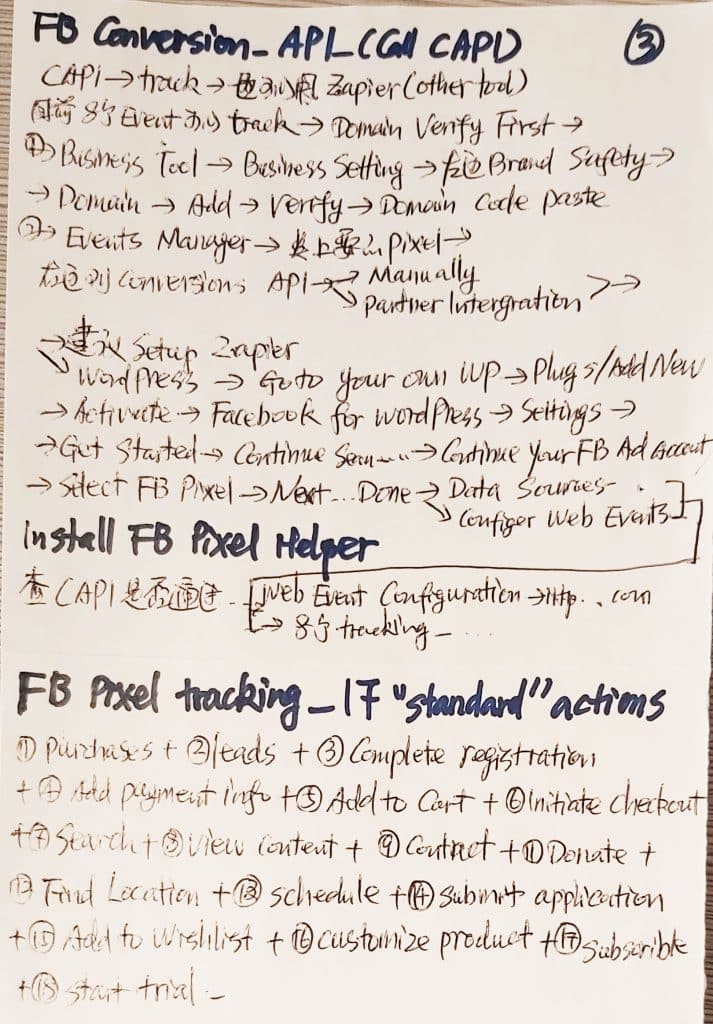 FB Conversion_API_(Call CAPI) ③
CAPi→track→也可以用Zapier(other tool)
目前 8个Event可以track→Domain Verify First→
①→Business Tool→Business Setting→左边Brand Safety→
→Domain→Add→Verify→Domain Code paste
②→Events Manager→ pixel→
左边到Conversions API→→Manually
↘Partner Intergration > →
→建议Setup Zapier
↘WordPress→Go to your own WP→Plugs/Add New
→Activate→Facebook for WordPress→Settings→
→Get Started→Continue ...→Continue your FB Ad Account
→Select FB Pixel→Next...Done→Data Sources-
↘Configer Web Events
Install FB Pixel Helper
查CAPI是否通过...Web Event Configuration→Http...com
→8个tracking_....
FB Pixel tracking_17 "standard" actions
① Purchases + ② leads + ③ Complete registration
+ ④ Add payment info + ⑤ Add to Cart + ⑥ Initiate checkout
+ ⑦ Search + ⑧ View content + ⑨ Contact + ⑪ Donate +
⑫ Find Location + ⑬ schedule + ⑭ submit application
+ ⑮ Add to Wishlist + ⑯ customize product + ⑰ Subscrible
+ ⑱ start trial_